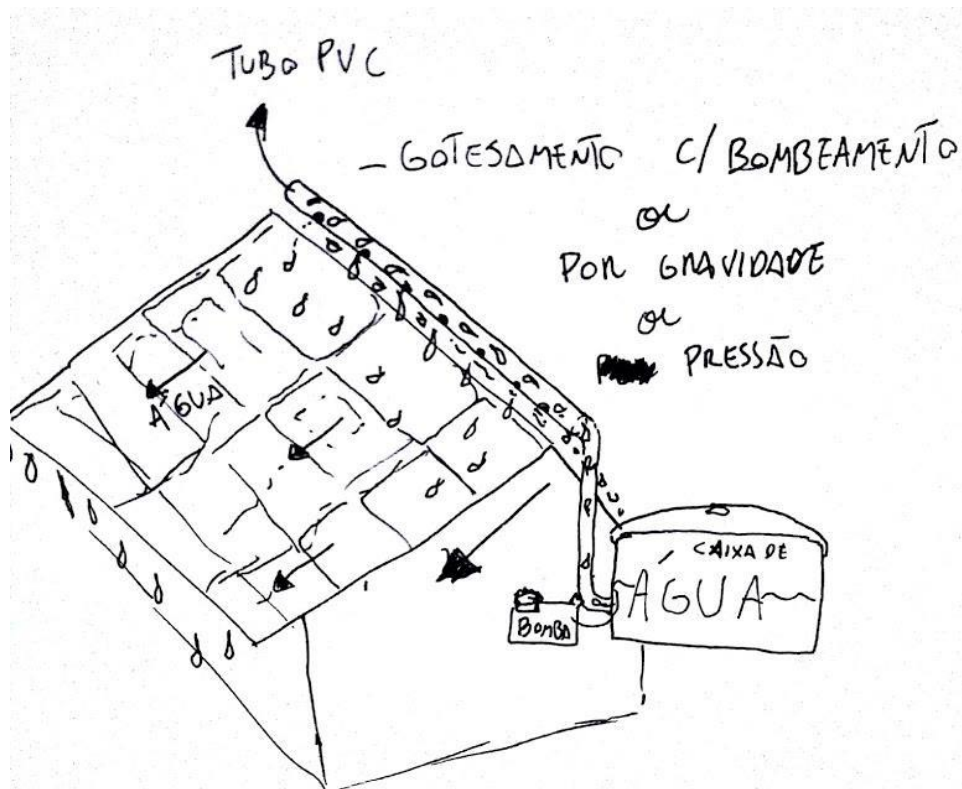 TUBO PVC
- GOTESAMENTO C/ BOMBEAMENTO
ou
POR GRAVIDADE
ou
PRESSÃO
ÁGUA
CAIXA DE
ÁGUA
BOMBA